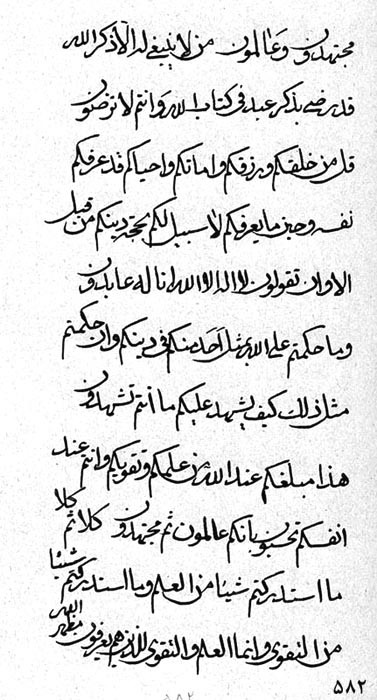 مجتهدون وعالمون من لا ينبغي له الا ذكر الله
قد رضي بذكر عبد في كتاب الله وانتم لا ترضون
قل من خلقكم ورزقكم واماتكم واحياكم قد عرفكم
نفسه وحين ما يعرفكم لا سبيل لكم بحجة دينكم من قبل
الا وان تقولون لا اله الا الله انا له عابدون
وما حكمتم على الله بمثل احد منكم في دينكم وان حكمتم
مثل ذلك كيف يشهد عليكم ما انتم تشهدون
هذا مبلغكم عند الله من علمكم وتقويكم وانتم عند
انفسكم تحسبون بانكم عالمون ثم مجتهدون كلا ثم كلا
ما استدركتم شيئا من العلم وما استدركتم شيئا
من التقوى وانما العلم والتقوى للذينهم يعرفون مظهر الله
۵۸۲